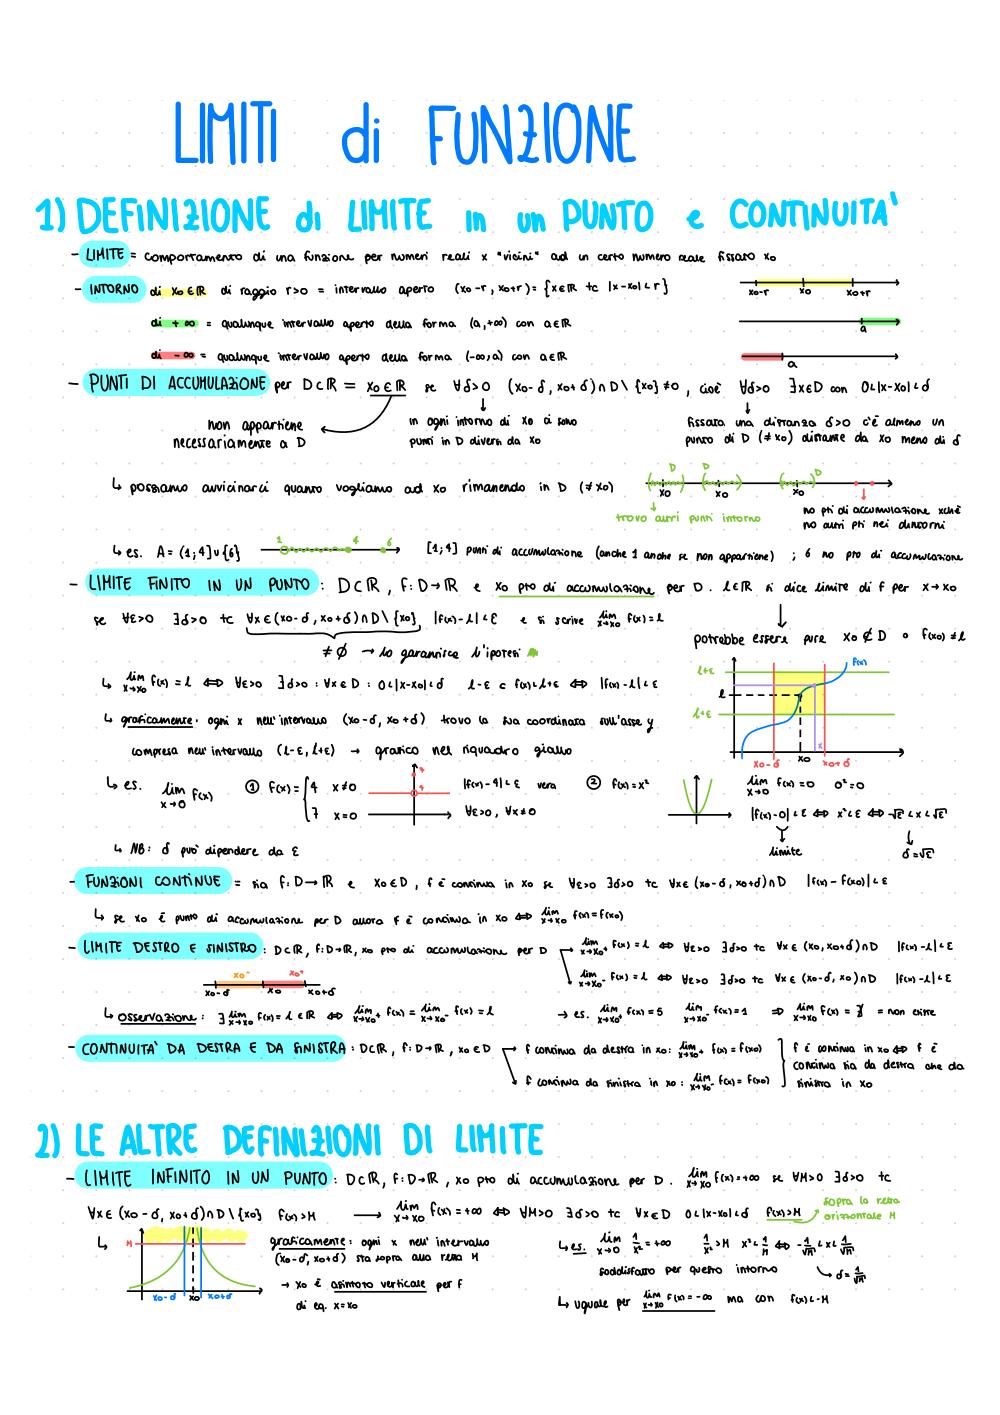 LIMITI di FUNZIONE
1) DEFINIZIONE di LIMITE in un PUNTO e CONTINUITA'
- LIMITE = comportamento di una funzione per numeri reali x "vicini" ad un certo numero reale fissato x₀
- INTORNO di x₀∈ℝ di raggio r>0 = intervallo aperto (x₀-r, x₀+r) = {x∈ℝ tc |x-x₀|<r}
x₀-r x₀ x₀+r
di +∞ = qualunque intervallo aperto della forma (a,+∞) con a∈ℝ
a
di -∞ = qualunque intervallo aperto della forma (-∞,a) con a∈ℝ
a
- PUNTI DI ACCUMULAZIONE per D⊂ℝ = x₀∈ℝ se ∀δ>0 (x₀-δ, x₀+δ)∩D\{x₀}≠0, cioè ∀δ>0 ∃x∈D con 0<|x-x₀|<δ
non appartiene necessariamente a D
in ogni intorno di x₀ ci sono punti in D diversi da x₀
fissata una distanza δ>0 c'è almeno un punto di D (≠x₀) distante da x₀ meno di δ
↳ possiamo avvicinarci quanto vogliamo ad x₀ rimanendo in D (≠x₀)
D D D
x₀ x₀ x₀
trovo altri punti intorno
no pti di accumulazione xchè no altri pti nei dintorni
↳ es. A = (1;4]∪{6} 1 4 6 [1;4] punti di accumulazione (anche 1 anche se non appartiene) ; 6 no pto di accumulazione
- LIMITE FINITO IN UN PUNTO: D⊂ℝ, f:D→ℝ e x₀ pto di accumulazione per D. l∈ℝ si dice limite di f per x→x₀
se ∀ε>0 ∃δ>0 tc ∀x∈(x₀-δ, x₀+δ)∩D\{x₀}, |f(x)-l|<ε e si scrive lim x→x₀ f(x)=l
≠∅ → lo garantisce l'ipotesi
potrebbe essere pure x₀∉D o f(x₀)≠l
↳ lim x→x₀ f(x)=l ⟺ ∀ε>0 ∃δ>0 : ∀x∈D : 0<|x-x₀|<δ l-ε < f(x)<l+ε ⟺ |f(x)-l|<ε
↳ graficamente: ogni x nell'intervallo (x₀-δ, x₀+δ) trovo la sua coordinata sull'asse y
compresa nell'intervallo (l-ε, l+ε) → grafico nel riquadro giallo
f(x)
l+ε
l
l+ε
x₀-δ x₀ x x₀+δ
↳ es. lim x→0 f(x) ① f(x)= { 4 x≠0
7 x=0
7
4
|f(x)-4|<ε vera
∀ε>0, ∀x≠0
② f(x)=x² lim x→0 f(x)=0 0²=0
|f(x)-0|<ε ⟺ x²<ε ⟺ -√ε<x<√ε
limite δ=√ε
↳ NB: δ può dipendere da ε
- FUNZIONI CONTINUE = sia f:D→ℝ e x₀∈D, f è continua in x₀ se ∀ε>0 ∃δ>0 tc ∀x∈(x₀-δ, x₀+δ)∩D |f(x)-f(x₀)|<ε
↳ se x₀ è punto di accumulazione per D allora f è continua in x₀ ⟺ lim x→x₀ f(x)=f(x₀)
- LIMITE DESTRO E SINISTRO: D⊂ℝ, f:D→ℝ, x₀ pto di accumulazione per D → lim x→x₀⁺ f(x)=l ⟺ ∀ε>0 ∃δ>0 tc ∀x∈(x₀, x₀+δ)∩D |f(x)-l|<ε
lim x→x₀⁻ f(x)=l ⟺ ∀ε>0 ∃δ>0 tc ∀x∈(x₀-δ, x₀)∩D |f(x)-l|<ε
x₀⁻ x₀⁺
x₀-δ x₀ x₀+δ
↳ osservazione: ∃ lim x→x₀ f(x)=l∈ℝ ⟺ lim x→x₀⁺ f(x)= lim x→x₀⁻ f(x)=l
→ es. lim x→x₀⁺ f(x)=5 lim x→x₀⁻ f(x)=1 ⟹ lim x→x₀ f(x)=∄ = non esiste
- CONTINUITA' DA DESTRA E DA SINISTRA: D⊂ℝ, f:D→ℝ, x₀∈D → f continua da destra in x₀: lim x→x₀⁺ f(x)=f(x₀)
f continua da sinistra in x₀: lim x→x₀⁻ f(x)=f(x₀)
f è continua in x₀ ⟺ f è continua sia da destra che da sinistra in x₀
2) LE ALTRE DEFINIZIONI DI LIMITE
- LIMITE INFINITO IN UN PUNTO: D⊂ℝ, f:D→ℝ, x₀ pto di accumulazione per D. lim x→x₀ f(x)=+∞ se ∀M>0 ∃δ>0 tc
∀x∈(x₀-δ, x₀+δ)∩D\{x₀} f(x)>M → lim x→x₀ f(x)=+∞ ⟺ ∀M>0 ∃δ>0 tc ∀x∈D 0<|x-x₀|<δ f(x)>M
sopra la retta orizzontale M
↳ M
x₀-δ x₀ x₀+δ
graficamente: ogni x nell'intervallo
(x₀-δ, x₀+δ) sta sopra alla retta M
→ x₀ è asintoto verticale per f
di eq. x=x₀
↳ es. lim x→0 1/x² = +∞ 1/x²>M x²<1/M ⟺ -1/√M<x<1/√M
soddisfatto per questo intorno ↳ δ=1/√M
↳ uguale per lim x→x₀ f(x)=-∞ ma con f(x)<-M